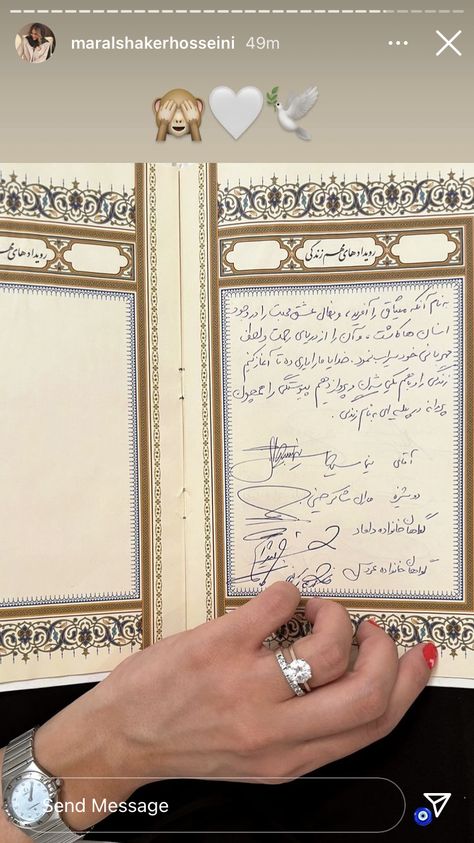 maralshakerhosseini 49m
رویدادهای مهم زندگی
رویدادهای مهم
به نام آنکه میثاق را آفرید، و نهال عشق و محبت را در وجود
انسان ها کاشت، و آن را از دریای رحمت و الطاف
مهربانی خود سیراب نمود. خدایا ما را یاری ده تا آغاز کنیم
زندگی را یکی شدن و پرواز دهیم پیوستگی را همچون
پروانه در پیله ای به نام زندگی.
آقای نیما
دوشیزه مارال شاکرحسینی
گواهان خانواده داماد
گواهان خانواده عروس
Send Message